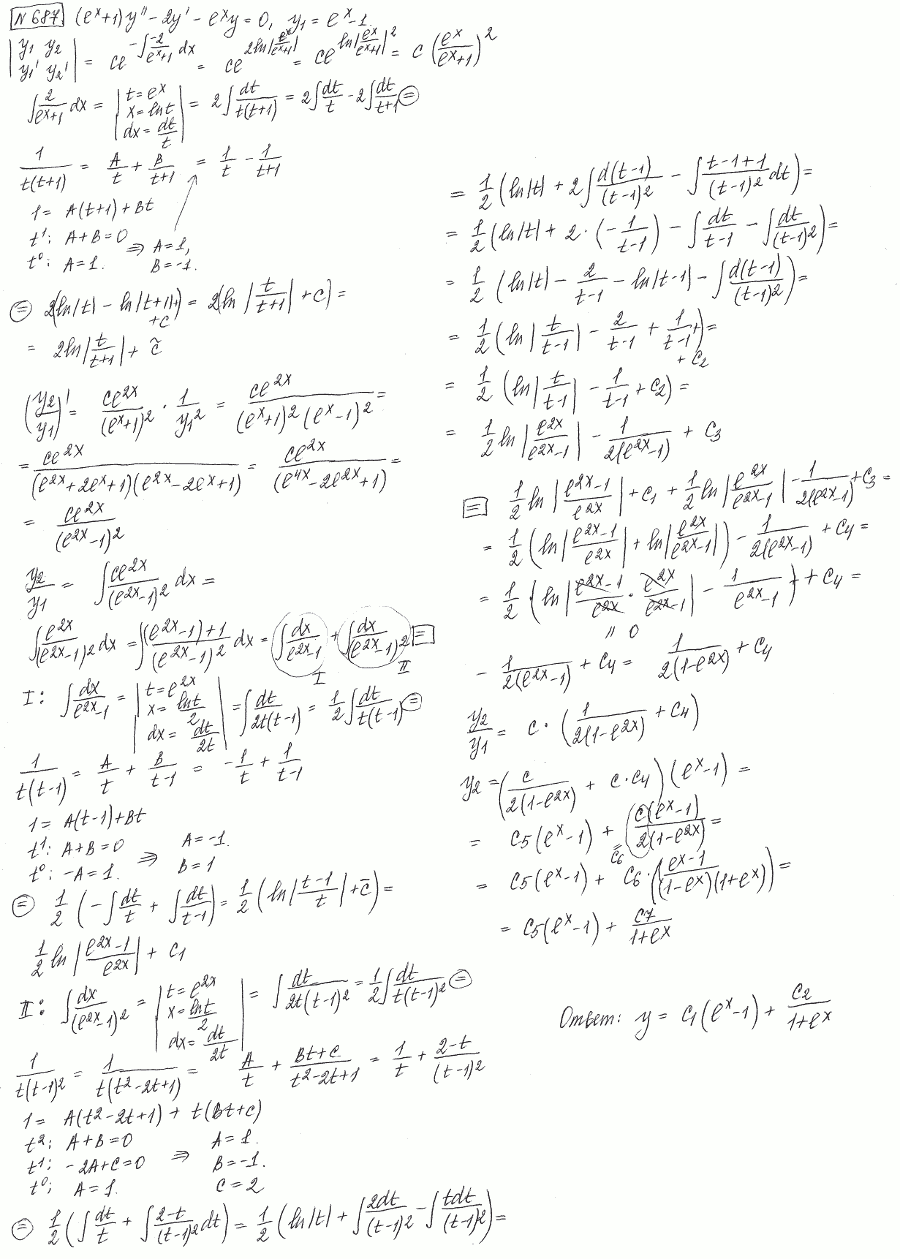 N 687 (eˣ+1)y'' - 2y' - eˣy = 0, y₁ = eˣ-1.
|y₁ y₂; y₁' y₂'| = ce^(-∫ -2/(eˣ+1) dx) = ce^(2ln|eˣ/(eˣ+1)|) = ce^(ln|eˣ/(eˣ+1)|²) = c (eˣ/(eˣ+1))²
∫ 2/(eˣ+1) dx = |t=eˣ; x=lnt; dx=dt/t| = 2∫ dt/(t(t+1)) = 2∫ dt/t - 2∫ dt/(t+1) ⊜
1/(t(t+1)) = A/t + B/(t+1) = 1/t - 1/(t+1)
1 = A(t+1) + Bt
t¹: A+B=0 ⇒ A=1,
t⁰: A=1. B=-1.
⊜ 2(ln|t| - ln|t+1| + c) = 2(ln|t/(t+1)| + c) =
= 2ln|t/(t+1)| + c̃
(y₂/y₁)' = ce²ˣ/(eˣ+1)² · 1/y₁² = ce²ˣ/((eˣ+1)²(eˣ-1)²) =
= ce²ˣ/((e²ˣ+2eˣ+1)(e²ˣ-2eˣ+1)) = ce²ˣ/(e⁴ˣ-2e²ˣ+1) =
= ce²ˣ/(e²ˣ-1)²
y₂/y₁ = ∫ ce²ˣ/(e²ˣ-1)² dx =
∫ e²ˣ/(e²ˣ-1)² dx = ∫ ((e²ˣ-1)+1)/(e²ˣ-1)² dx = ∫ dx/(e²ˣ-1) + ∫ dx/(e²ˣ-1)² ⊟
I II
I: ∫ dx/(e²ˣ-1) = |t=e²ˣ; x=lnt/2; dx=dt/2t| = ∫ dt/(2t(t-1)) = 1/2 ∫ dt/(t(t-1)) ⊜
1/(t(t-1)) = A/t + B/(t-1) = -1/t + 1/(t-1)
1 = A(t-1)+Bt
t¹: A+B=0 ⇒ A=-1.
t⁰: -A=1. B=1
⊜ 1/2 (-∫ dt/t + ∫ dt/(t-1)) = 1/2 (ln|(t-1)/t| + c̄) =
1/2 ln|(e²ˣ-1)/e²ˣ| + c₁
II: ∫ dx/(e²ˣ-1)² = |t=e²ˣ; x=lnt/2; dx=dt/2t| = ∫ dt/(2t(t-1)²) = 1/2 ∫ dt/(t(t-1)²) ⊜
1/(t(t-1)²) = 1/(t(t²-2t+1)) = A/t + (Bt+c)/(t²-2t+1) = 1/t + (2-t)/(t-1)²
1 = A(t²-2t+1) + t(Bt+c)
t²: A+B=0 A=1.
t¹: -2A+C=0 ⇒ B=-1.
t⁰: A=1. C=2
⊜ 1/2 (∫ dt/t + ∫ (2-t)/(t-1)² dt) = 1/2 (ln|t| + ∫ 2dt/(t-1)² - ∫ tdt/(t-1)²) =
= 1/2 (ln|t| + 2∫ d(t-1)/(t-1)² - ∫ (t-1+1)/(t-1)² dt) =
= 1/2 (ln|t| + 2·(-1/(t-1)) - ∫ dt/(t-1) - ∫ dt/(t-1)²) =
= 1/2 (ln|t| - 2/(t-1) - ln|t-1| - ∫ d(t-1)/(t-1)²) =
= 1/2 (ln|t/(t-1)| - 2/(t-1) + 1/(t-1) + c₂) =
= 1/2 (ln|t/(t-1)| - 1/(t-1) + c₂) =
= 1/2 ln|e²ˣ/(e²ˣ-1)| - 1/(2(e²ˣ-1)) + c₃
⊟ 1/2 ln|(e²ˣ-1)/e²ˣ| + c₁ + 1/2 ln|e²ˣ/(e²ˣ-1)| - 1/(2(e²ˣ-1)) + c₃ =
= 1/2 (ln|(e²ˣ-1)/e²ˣ| + ln|e²ˣ/(e²ˣ-1)|) - 1/(2(e²ˣ-1)) + c₄ =
= 1/2 · (ln|(e²ˣ-1)/e²ˣ · e²ˣ/(e²ˣ-1)| - 1/(e²ˣ-1)) + c₄ =
" 0
- 1/(2(e²ˣ-1)) + c₄ = 1/(2(1-e²ˣ)) + c₄
y₂/y₁ = c·(1/(2(1-e²ˣ)) + c₄)
y₂ = (c/(2(1-e²ˣ)) + c·c₄)(eˣ-1) =
= c₅(eˣ-1) + c(eˣ-1)/(2(1-e²ˣ)) =
= c₆
= c₅(eˣ-1) + c₆·((eˣ-1)/((1-eˣ)(1+eˣ))) =
= c₅(eˣ-1) + c₇/(1+eˣ)
Ответ: y = c₁(eˣ-1) + c₂/(1+eˣ)